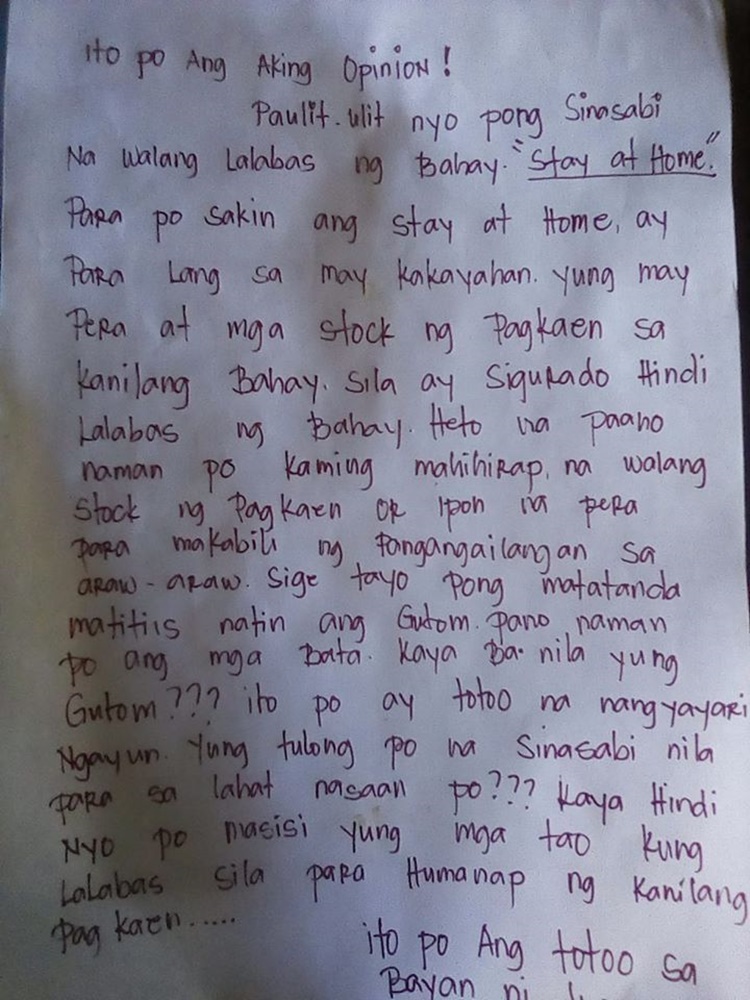 ito po Ang Aking Opinion!
Paulit.ulit nyo pong Sinasabi
Na walang Lalabas ng Bahay. "Stay at Home".
Para po sakin ang stay at Home, ay
Para Lang sa may kakayahan. yung may
Pera at mga stock ng Pagkaen sa
kanilang Bahay. Sila ay Sigurado Hindi
Lalabas ng Bahay. Heto na paano
naman po kaming mahihirap, na walang
Stock ng Pagkaen or ipon na pera
para makabili ng Pangangailangan sa
araw-araw. Sige tayo pong matatanda
matitiis natin ang Gutom. pano naman
po ang mga Bata. kaya Ba nila yung
Gutom??? ito po ay totoo na nangyayari
Ngayun. Yung tulong po na Sinasabi nila
para sa lahat nasaan po??? kaya Hindi
Nyo po masisi yung mga tao kung
Lalabas sila para Humanap ng kanilang
Pag kaen.....
ito po Ang totoo sa
Bayan ni